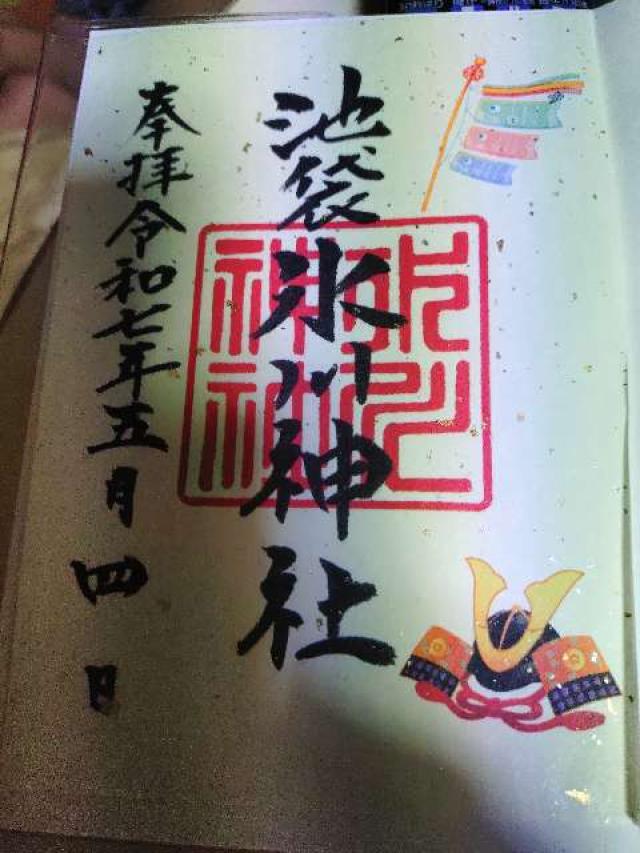 池袋氷川神社
奉拝令和七年五月四日
氷川
神社